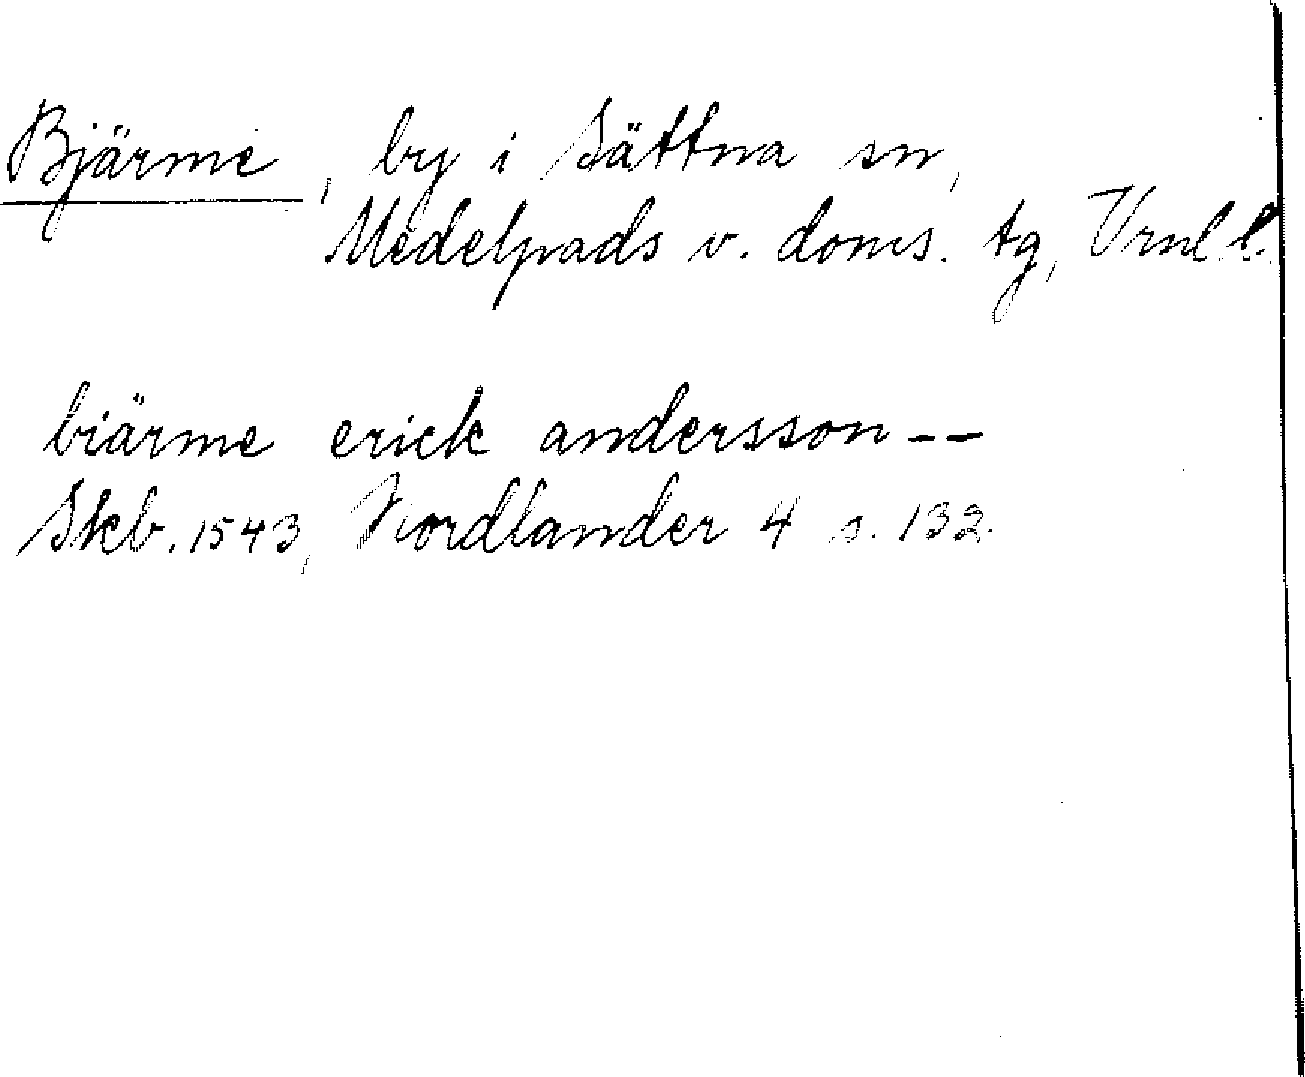 Bjärme, by i Sättna sn,
Medelpads v. doms. tg, Vrnl l.
biärme erick andersson--
Skb. 1543, Nordlander 4 s. 132.